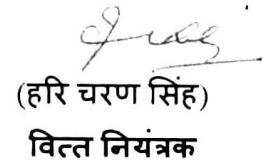 (हरि चरण सिंह)
वित्त नियंत्रक